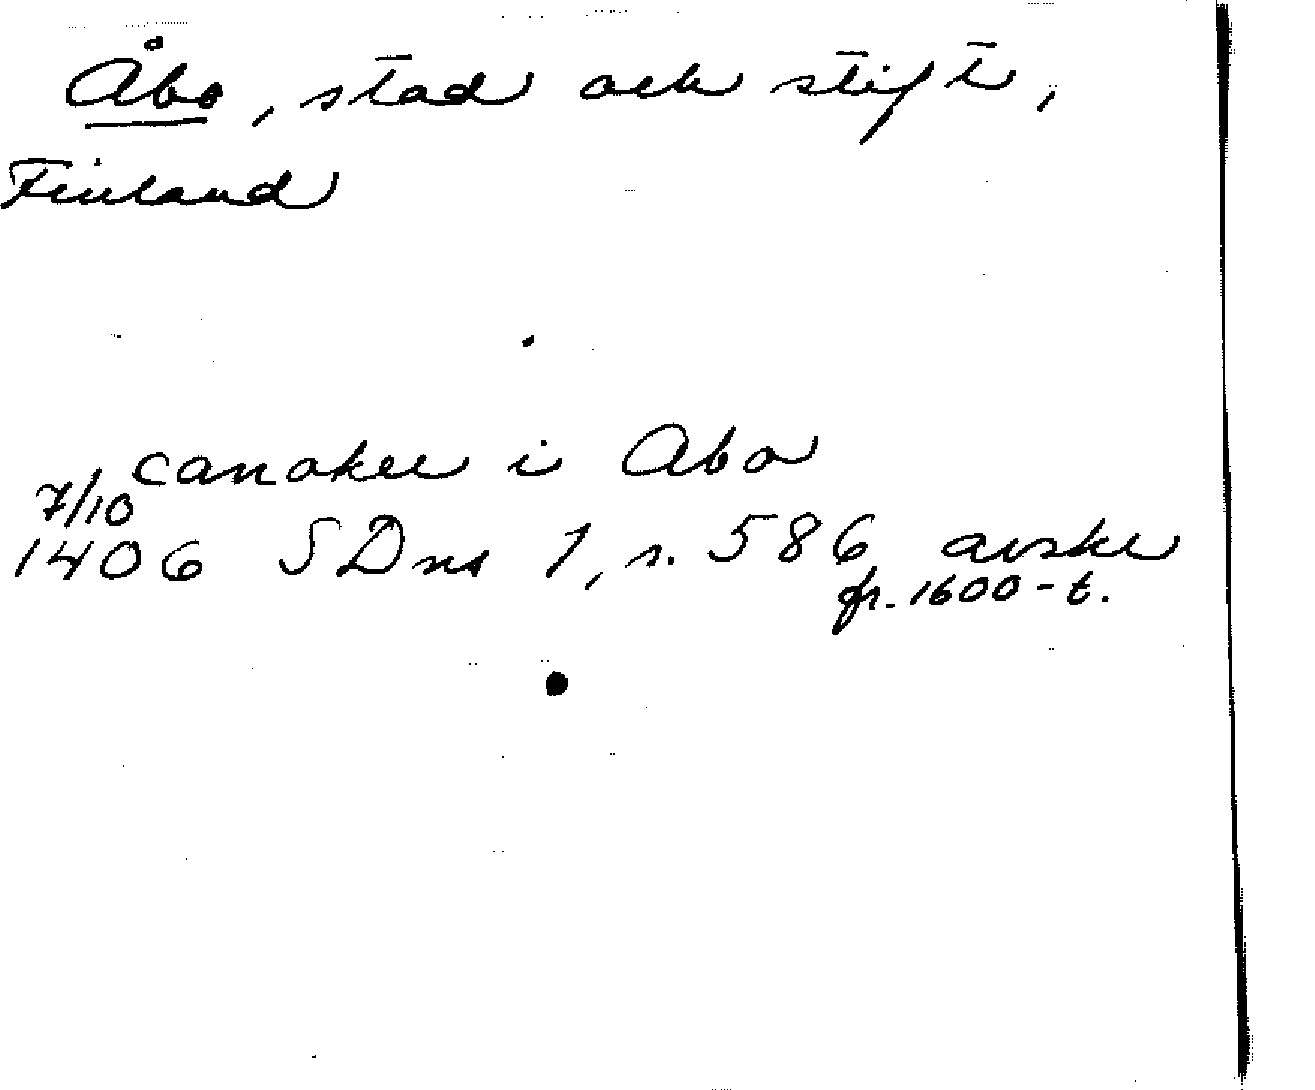 Åbo, stad och stift,
Finland
canoker i Abo
7/10
1406 SDns 1, s. 586 avskr
fr. 1600-t.